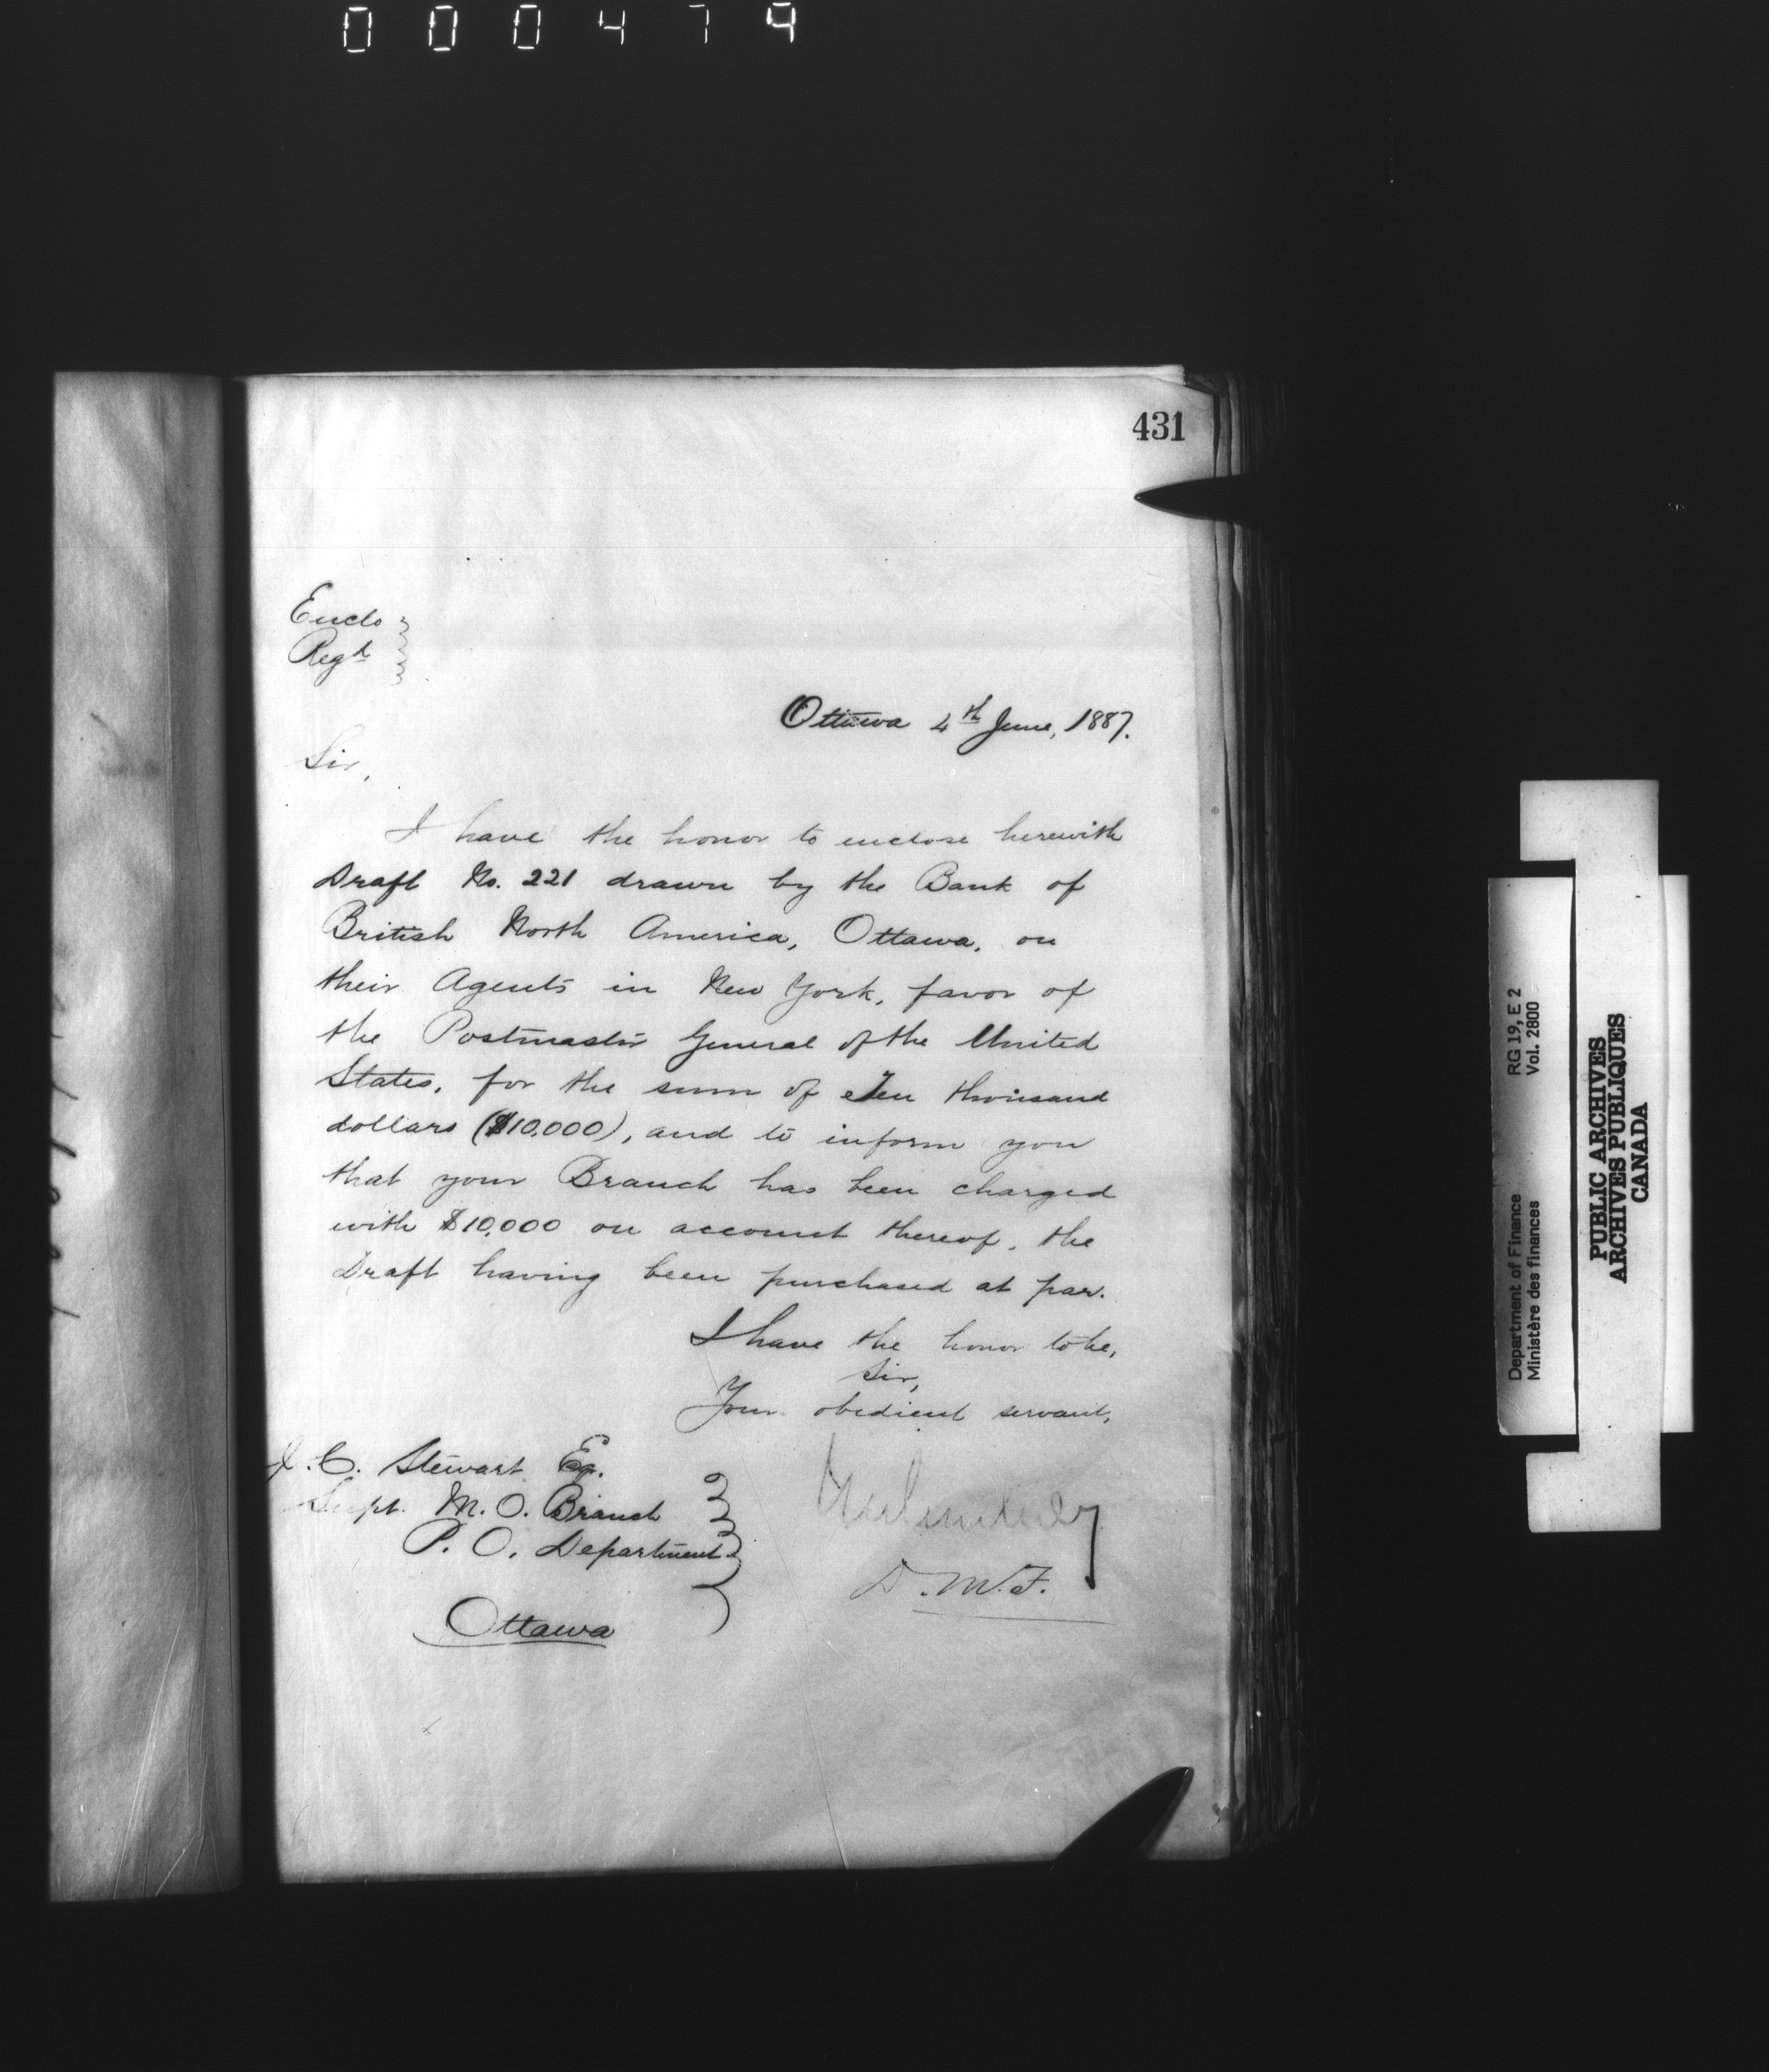 000479
431
Enclo
Regd
Ottawa 4th June, 1887.
Sir,
I have the honor to enclose herewith
Draft No. 221 drawn by the Bank of
British North America, Ottawa, on
their Agents in New York, favor of
the Postmaster General of the United
States, for the sum of Ten thousand
dollars ($10,000), and to inform you
that your Branch has been charged
with $10,000 on account thereof, the
Draft having been purchased at par.
I have the honor to be,
Sir,
Your obedient servant,
D.M.F.
J.C. Stewart Esq.
Supt. M.O. Branch
P.O. Department
Ottawa
Department of Finance RG 19, E 2
Ministère des finances Vol. 2800
PUBLIC ARCHIVES
ARCHIVES PUBLIQUES
CANADA